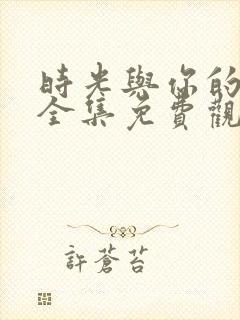 時光與你的
全集免費觀
許蒼苔